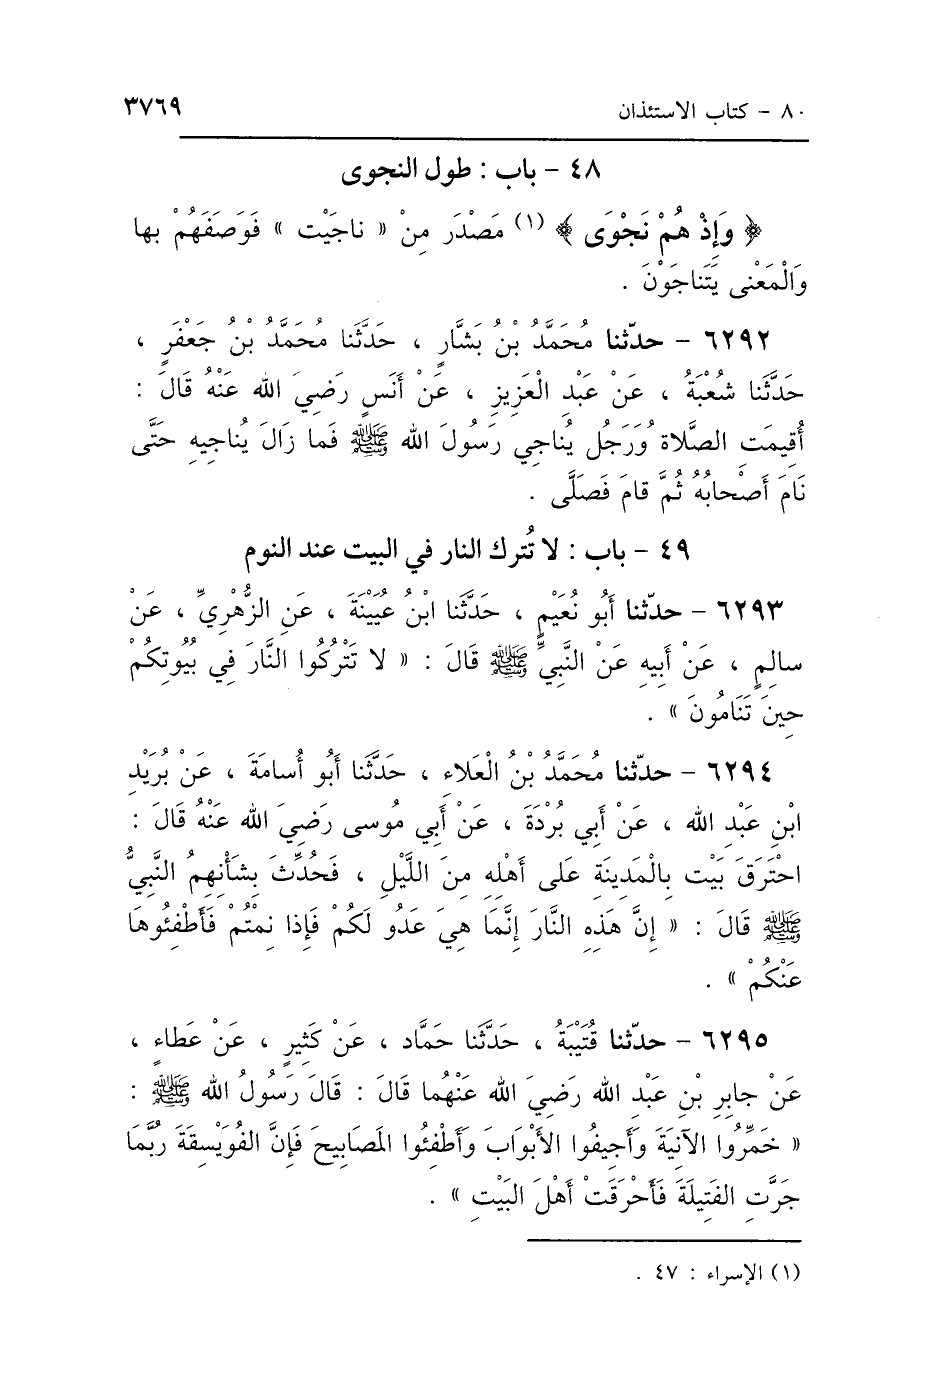 ٨٠ - كتاب الاستئذان ٣٧٦٩
٤٨ - باب : طول النجوى
﴿ وَإِذْ هُمْ نَجْوَى ﴾ (١) مَصْدَر مِنْ « ناجَيْت » فَوَصَفَهُمْ بها
وَالْمَعْنى يَتَناجَوْنَ .
٦٢٩٢ - حدّثنا مُحَمَّدُ بْنُ بَشَّارٍ ، حَدَّثَنا مُحَمَّدُ بْنُ جَعْفَرٍ ،
حَدَّثَنا شُعْبَةُ ، عَنْ عَبْدِ الْعَزِيزِ ، عَنْ أَنَسٍ رَضِيَ الله عَنْهُ قَالَ :
أُقِيمَتِ الصَّلاة وَرَجُل يُناجِي رَسُولَ الله ﷺ فَما زَالَ يُناجِيهِ حَتَّى
نَامَ أَصْحابُهُ ثُمَّ قامَ فَصَلَّى .
٤٩ - باب : لا تُترك النار في البيت عند النوم
٦٢٩٣ - حدّثنا أَبُو نُعَيْمٍ ، حَدَّثَنا ابْنُ عُيَيْنَةَ ، عَنِ الزُّهْرِيِّ ، عَنْ
سالِمٍ ، عَنْ أَبِيهِ عَنْ النَّبِيِّ ﷺ قَالَ : « لا تَتْرُكُوا النَّارَ فِي بُيُوتِكُمْ
حِينَ تَنَامُونَ » .
٦٢٩٤ - حدّثنا مُحَمَّدُ بْنُ الْعَلاءِ ، حَدَّثَنا أَبُو أُسامَةَ ، عَنْ بُرَيْدِ
ابْنِ عَبْدِ الله ، عَنْ أَبِي بُرْدَةَ ، عَنْ أَبِي مُوسى رَضِيَ الله عَنْهُ قَالَ :
احْتَرَقَ بَيْت بِالْمَدِينَةِ عَلى أَهْلِهِ مِنَ اللَّيْلِ ، فَحُدِّثَ بِشَأْنِهِمُ النَّبِيُّ
ﷺ قَالَ : « إِنَّ هَذِهِ النَّارَ إِنَّمَا هِيَ عَدُو لَكُمْ فَإِذا نِمْتُمْ فَأَطْفِئُوهَا
عَنْكُمْ » .
٦٢٩٥ - حدّثنا قُتَيْبَةُ ، حَدَّثَنا حَمَّاد ، عَنْ كَثِيرٍ ، عَنْ عَطاءٍ ،
عَنْ جابِرِ بْنِ عَبْدِ الله رَضِيَ الله عَنْهُما قَالَ : قَالَ رَسُولُ الله ﷺ :
« خَمِّرُوا الآنِيَةَ وَأَجِيفُوا الأَبْوَابَ وَأَطْفِئُوا المَصابِيحَ فَإِنَّ الفُوَيْسِقَةَ رُبَّمَا
جَرَّتِ الفَتِيلَةَ فَأَحْرَقَتْ أَهْلَ البَيْتِ » .
(١) الإسراء : ٤٧ .